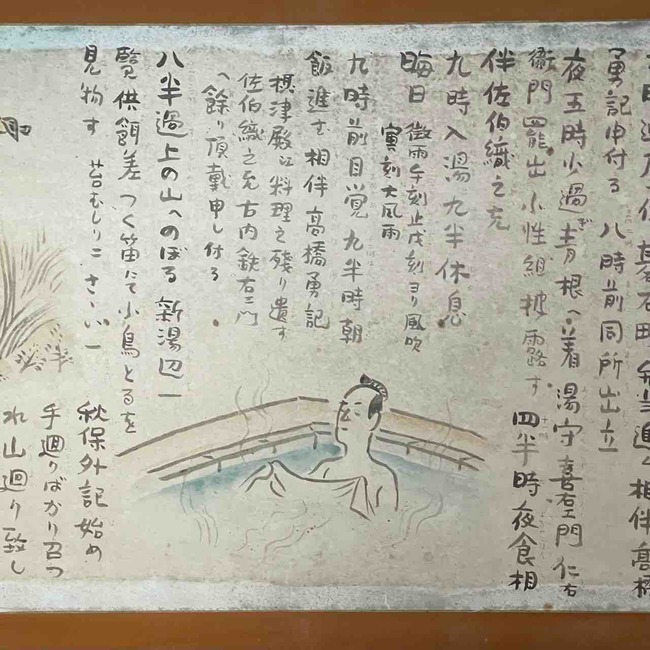 碁石田 弁当進ム 相伴 高橋
勇記申付る 八時前同所出立
夜五時少過ぎ青根へ着 湯守喜右エ門 仁右
衛門罷出 小性組披露す 四半時夜食相
伴佐伯織之允
九時入湯 九半休息
晦日 微雨午刻止戌刻ヨリ風吹
寅刻大風雨
九時前目覚 九半時朝
飯進む 相伴 高橋勇記
摂津殿に料理之残り遣す
佐伯織之允古内鉄右エ門
へ餘り頂戴申し付る
八半過上の山へのぼる 新湯辺一
覧 供餌差 つく笛にて小鳥とるを
見物す 苔むしりニ さゝい一
秋保外記始め
手廻りばかり召つ
れ山廻り致し